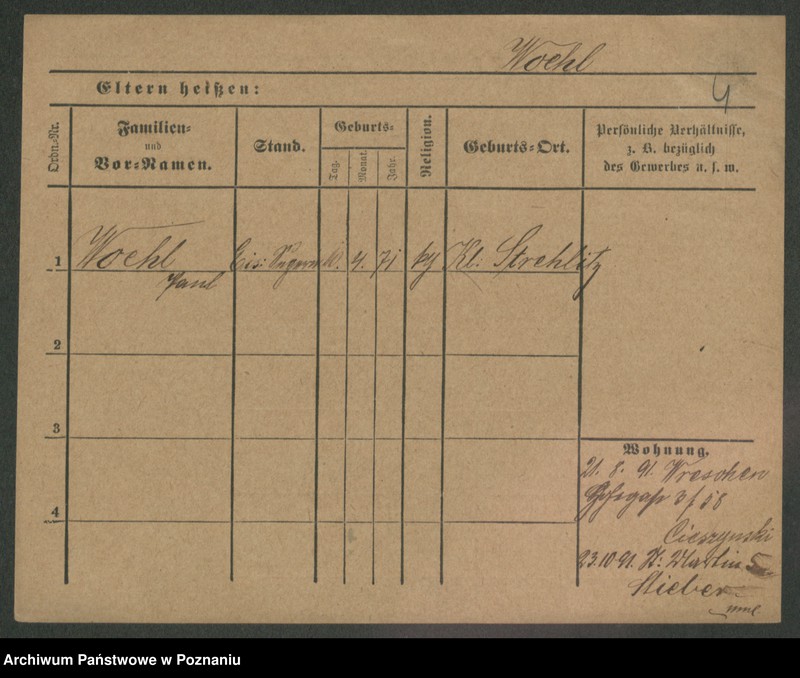 Woehl
Eltern heißen:
4
Ordn.-Nr.
Familien-
und
Vor-Namen.
Stand.
Geburts-
Tag.
Monat.
Jahr.
Religion.
Geburts-Ort.
Persönliche Verhältnisse,
z. B. bezüglich
des Gewerbes u. s. w.
1 Woehl 4. 71 Kl: Strehlitz
Paul
2
3
4
Wohnung.
21. 8. 91. Wreschen
3/58
Cieszynski
23.10.91. St: Martin 5
Stieber
Archiwum Państwowe w Poznaniu